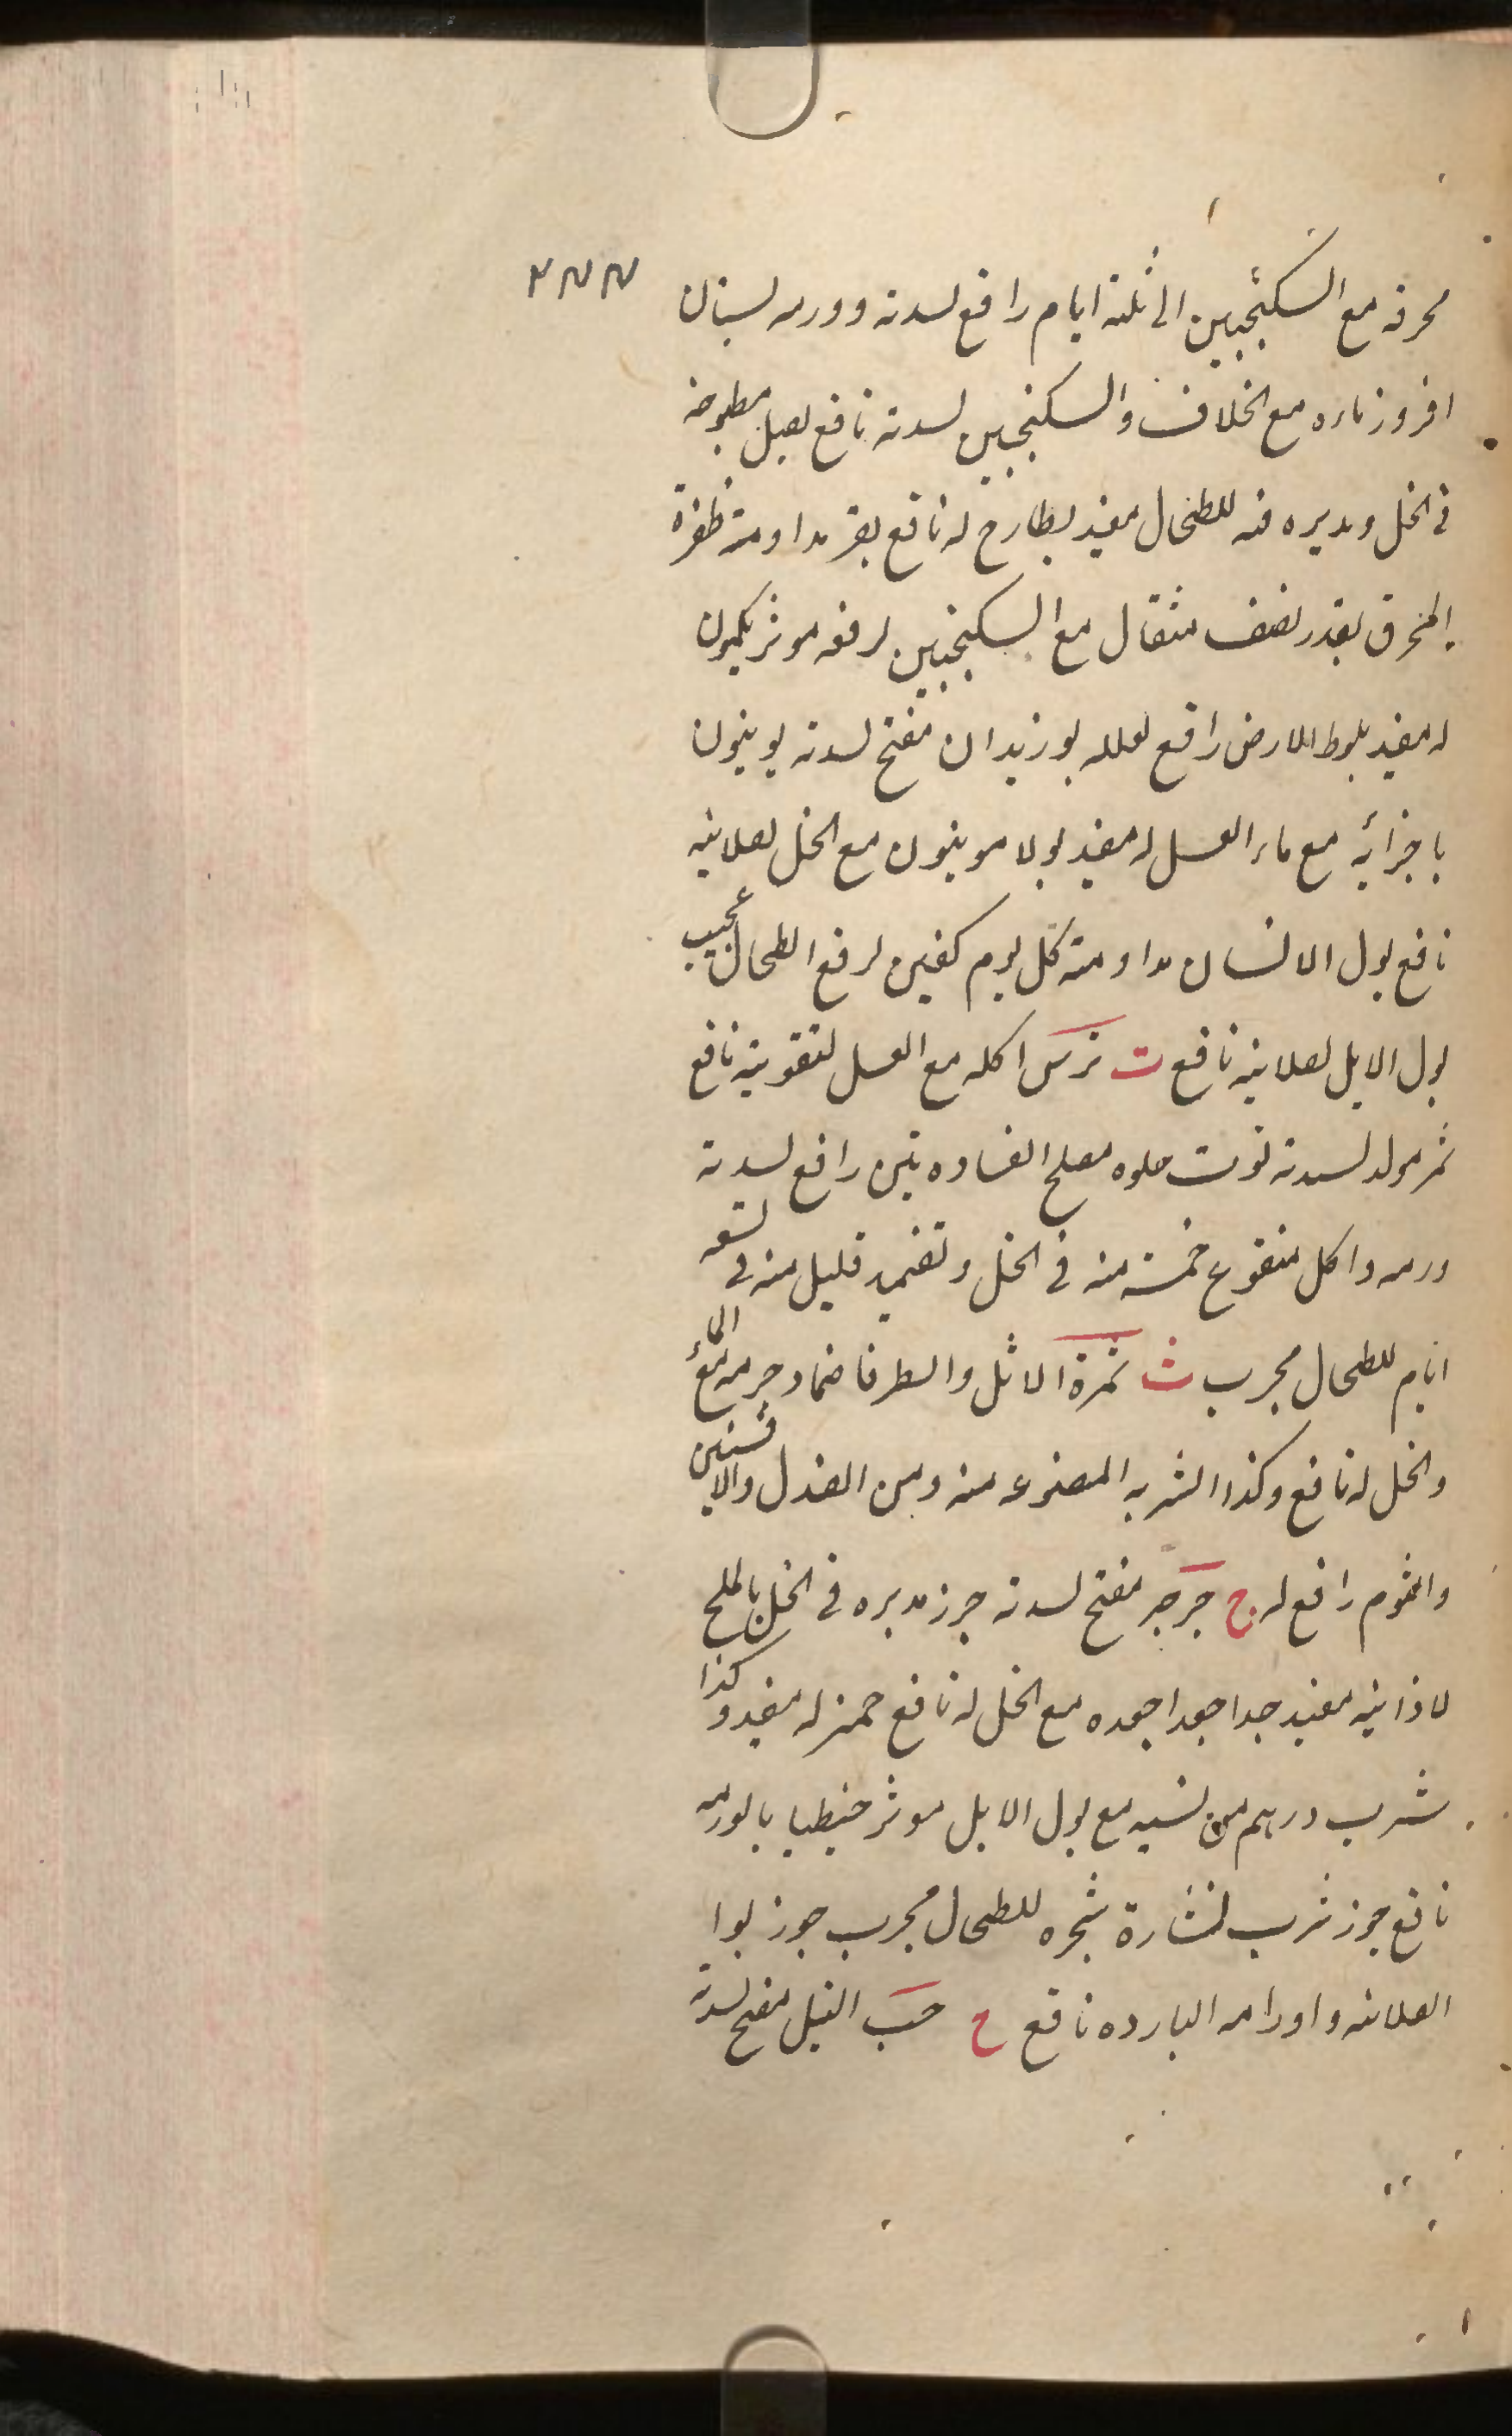 ٢٧٧
محرقه مع السكنجبين الى ثلثة ايام رافع لسدته وورمه لستان
افروز ماءه مع الخلاف والسكنجبين لسدته نافع بصل مطبوخه
فى الخل ومدبره فيه للطحال مفيد بطارخ له نافع بقر مداومة ظفره
المحرق بقدر نصف مثقال مع السكنجبين لرفعه موثر بكمون
له مفيد بلوط الارض رافع لعلله بوزيدان مفتح لسدته بونيون
باجزائه مع ماء العسل له مفيد بولامونيون مع الخل لصلابته
نافع بول الانسان مداومة كل يوم كفين لرفع الطحال عجيب
بول الابل لصلابته نافع ت ترمس اكله مع العسل لتقويته نافع
تمر مولد لسدته توت حلوه مصلح الفساده تين رافع لسدته
ورمه واكل منقوع خمسة منه فى الخل وتضميد قليل منه فى تسعه
ايام للطحال مجرب ث ثمرة الاثل والطرفا ضماد جرمه مع الماء
والخل له نافع وكذا الشربه المصنوعه منه ومن الصندل والافسنتين
والثوم رافع له ج جرجر مفتح لسدته جزر مدبره فى الخل بالملح
لاذابته مفيد جدا جعدا جعده مع الخل له نافع جمز له مفيد وكذا
شرب درهم من لسيه مع بول الابل موثر جنطيا بالورمه
نافع جوز شرب نشارة شجره للطحال مجرب جوز بوا
الصلابته واورامه البارده نافع ح حب النيل مفتح لسدته